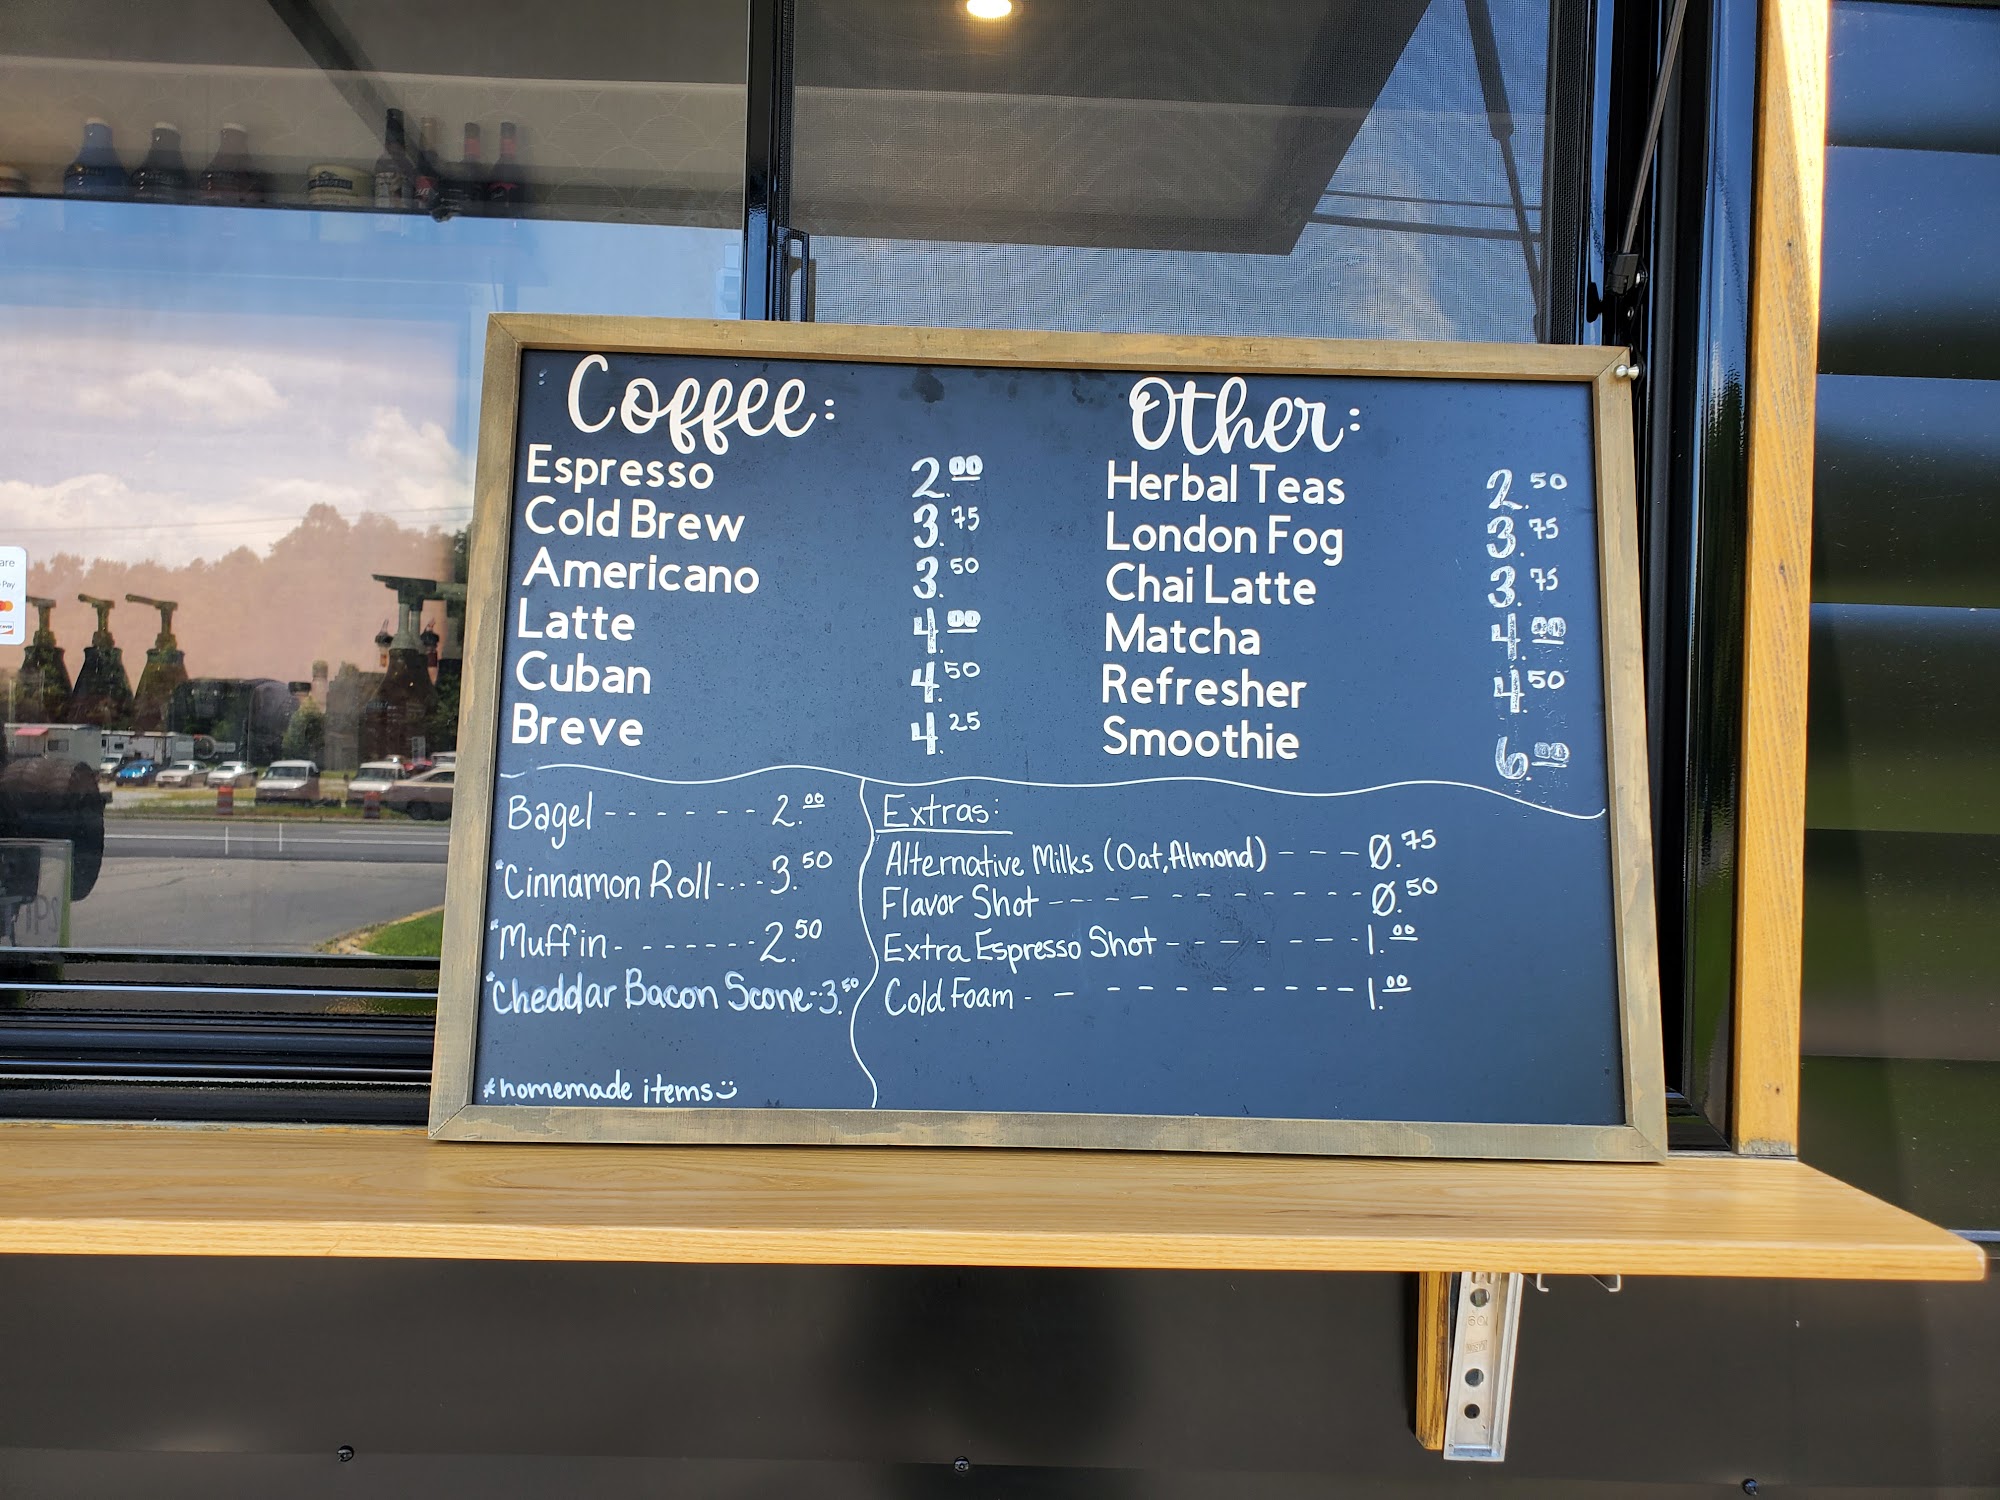 Coffee:
Espresso 2.00
Cold Brew 3.75
Americano 3.50
Latte 4.00
Cuban 4.50
Breve 4.25
Other:
Herbal Teas 2.50
London Fog 3.75
Chai Latte 3.75
Matcha 4.00
Refresher 4.50
Smoothie 6.00
Bagel ------ 2.00
*Cinnamon Roll ---- 3.50
*Muffin ------- 2.50
*Cheddar Bacon Scone -- 3.50
*homemade items
Extras:
Alternative Milks (Oat, Almond) --- 0.75
Flavor Shot ----------- 0.50
Extra Espresso Shot ------- 1.00
Cold Foam ---------- 1.00
Pay